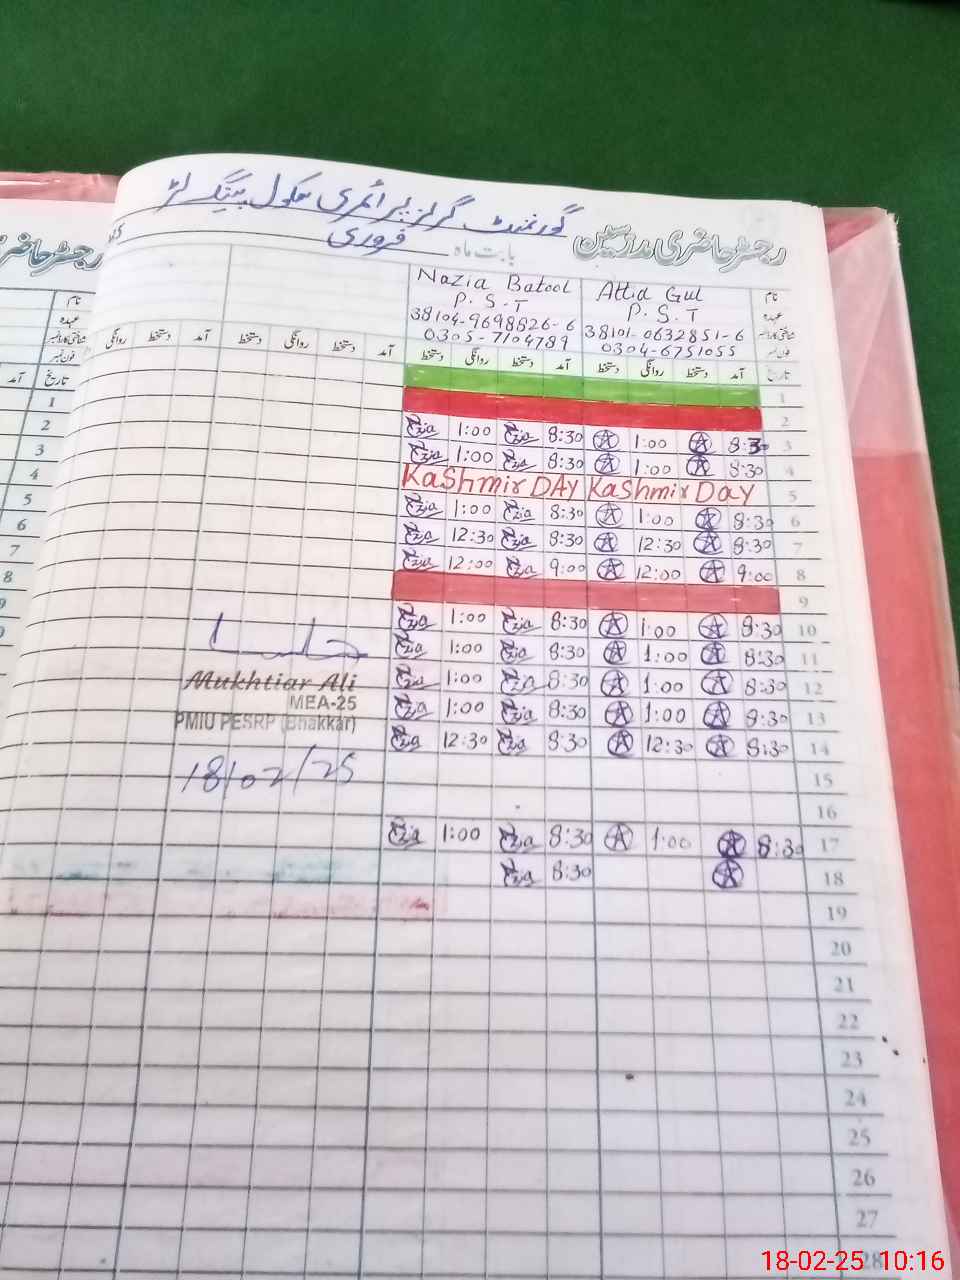 گورنمنٹ گرلز پرائمری سکول
رجسٹر حاضری مدرسین
بابت ماہ فروری
نام Attia Gul Nazia Batool
عہدہ P.S.T P.S.T
شناختی کارڈ نمبر 38101-0632851-6 38104-9698826-6
فون نمبر 0304-6751055 0305-7104789
تاریخ آمد دستخط روانگی دستخط آمد دستخط روانگی دستخط آمد دستخط روانگی دستخط آمد دستخط روانگی
1
2
3 8:30 1:00 8:30 1:00
4 8:30 1:00 8:30 1:00
KaShmir DAY KaShmir Day 5
6 8:30 1:00 8:30 1:00
7 8:30 12:30 8:30 12:30
8 9:00 12:00 9:00 12:00
9
10 8:30 1:00 8:30 1:00
11 8:30 1:00 8:30 1:00
12 8:30 1:00 8:30 1:00
13 8:30 1:00 8:30 1:00
14 8:30 12:30 8:30 12:30
15
16
17 8:30 1:00 8:30 1:00
18 8:30
19
20
21
22
23
24
25
26
27
28
Mukhtiar Ali
MEA-25
PMIU PESRP (Bhakkar)
18/02/25
رجسٹر حاضر
نام
عہدہ
شناختی کارڈ نمبر
فون نمبر
تاریخ آمد
1
2
3
4
5
6
7
8
9
18-02-25 10:16